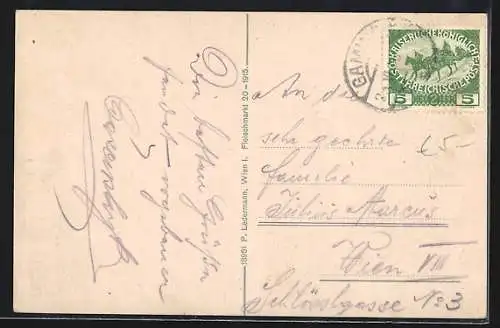 Die besten Grüße
sendet
18951 P. Ledermann, Wien I. Fleischmarkt 20 – 1915.
KAISERLICHE KÖNIGLICHE
ÖSTERREICHISCHE POST
5 5
An die
sehr geehrte
Familie
Julius Marcus
Wien VIII
Schlösslgasse No 3
£5-